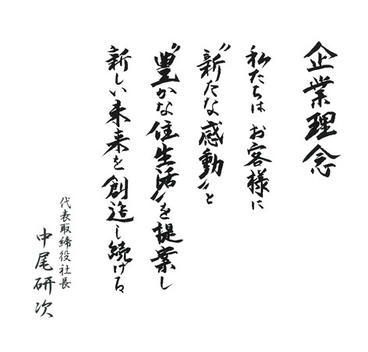 企業理念
私たちは お客様に
“新たな感動”と
“豊かな住生活”を提案し
新しい未来を創造し続ける
代表取締役社長
中尾研次